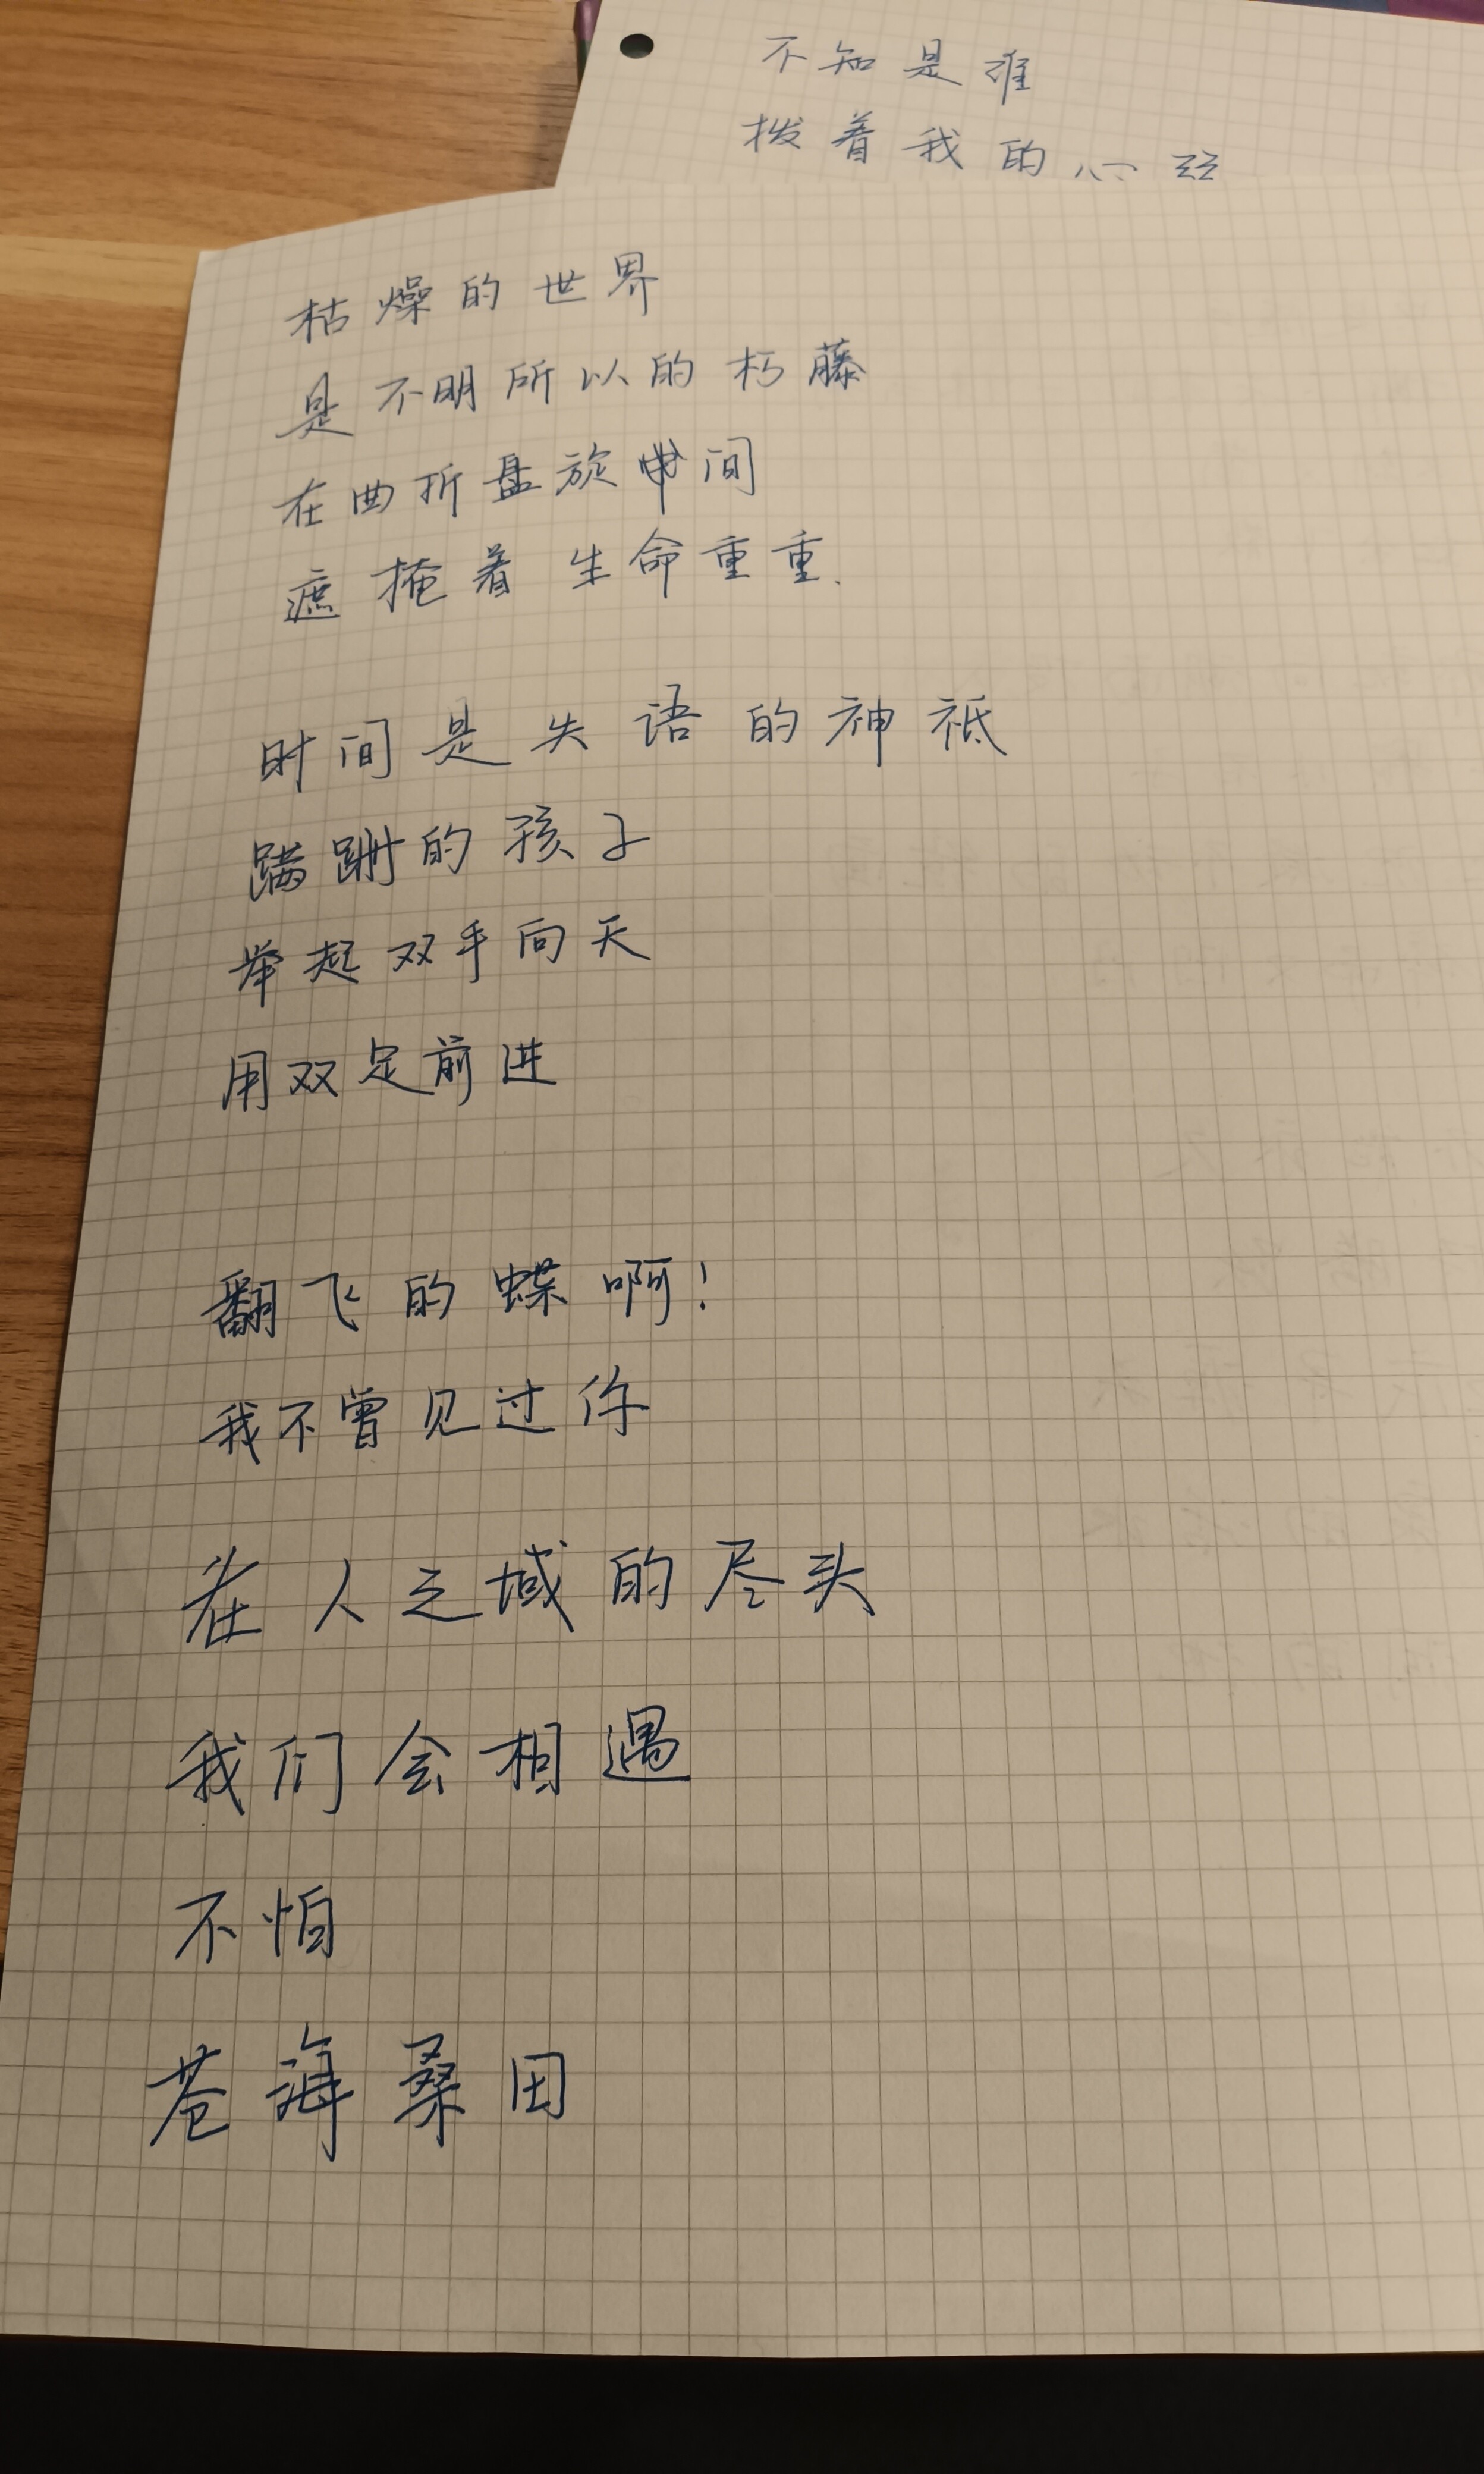 不知是谁
拨着我的心
枯燥的世界
是不明所以的朽藤
在曲折盘旋中间
遮掩着生命重重.
时间是失语的神祇
蹒跚的孩子
举起双手向天
用双足前进
翻飞的蝶啊！
我不曾见过你
在人之域的尽头
我们会相遇
不怕
苍海桑田